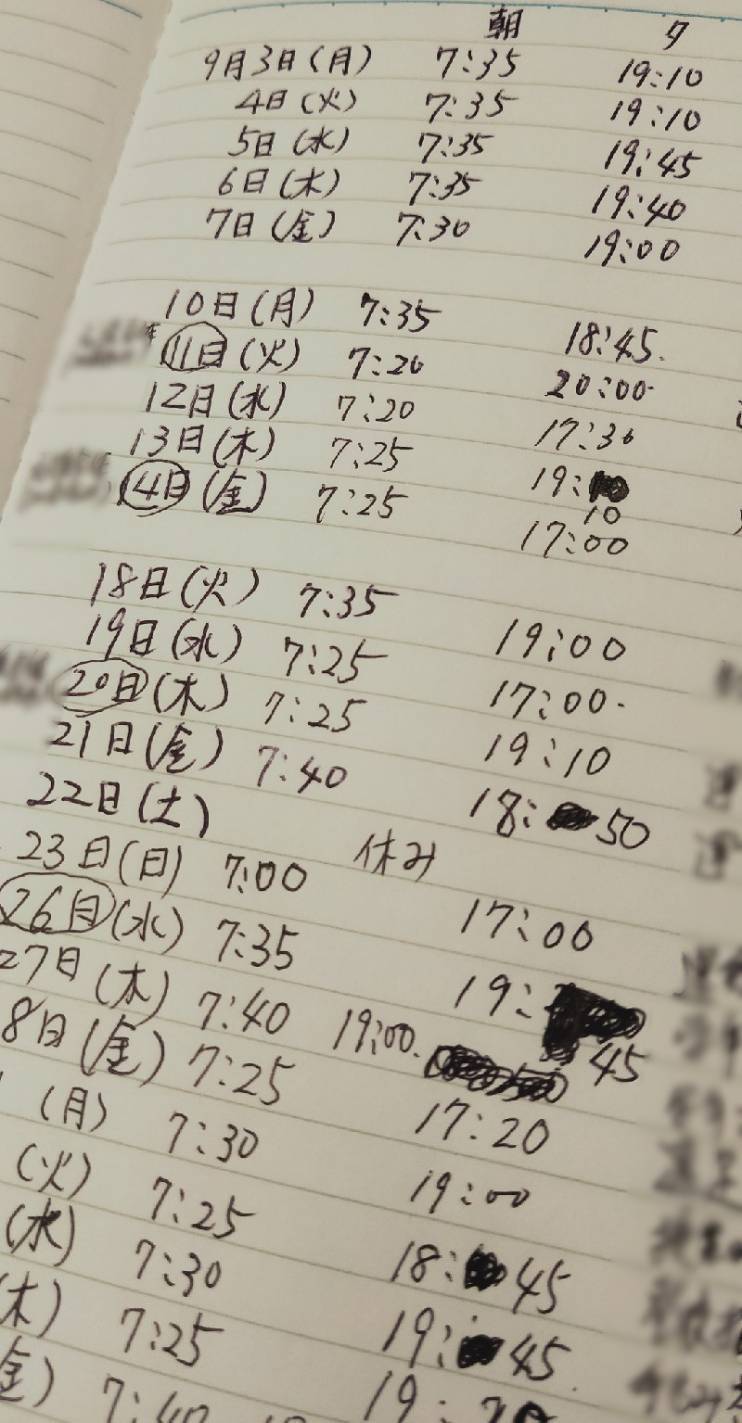 朝 夕
9月3日(月) 7:35 19:10
4日(火) 7:35 19:10
5日(水) 7:35 19:45
6日(木) 7:35 19:40
7日(金) 7:30 19:00
10日(月) 7:35 18:45.
11日(火) 7:20 20:00
12日(水) 7:20 17:30
13日(木) 7:25 19:10
14日(金) 7:25 17:00
18日(火) 7:35 19:00
19日(水) 7:25 17:00
20日(木) 7:25 19:10
21日(金) 7:40 18:50
22日(土) 休み
23日(日) 7:00 17:00
26日(水) 7:35 19:45
27日(木) 7:40 19:00.
8日(金) 7:25 17:20
(月) 7:30 19:00
(火) 7:25 18:45
(水) 7:30 19:45
(木) 7:25
金) 7:40